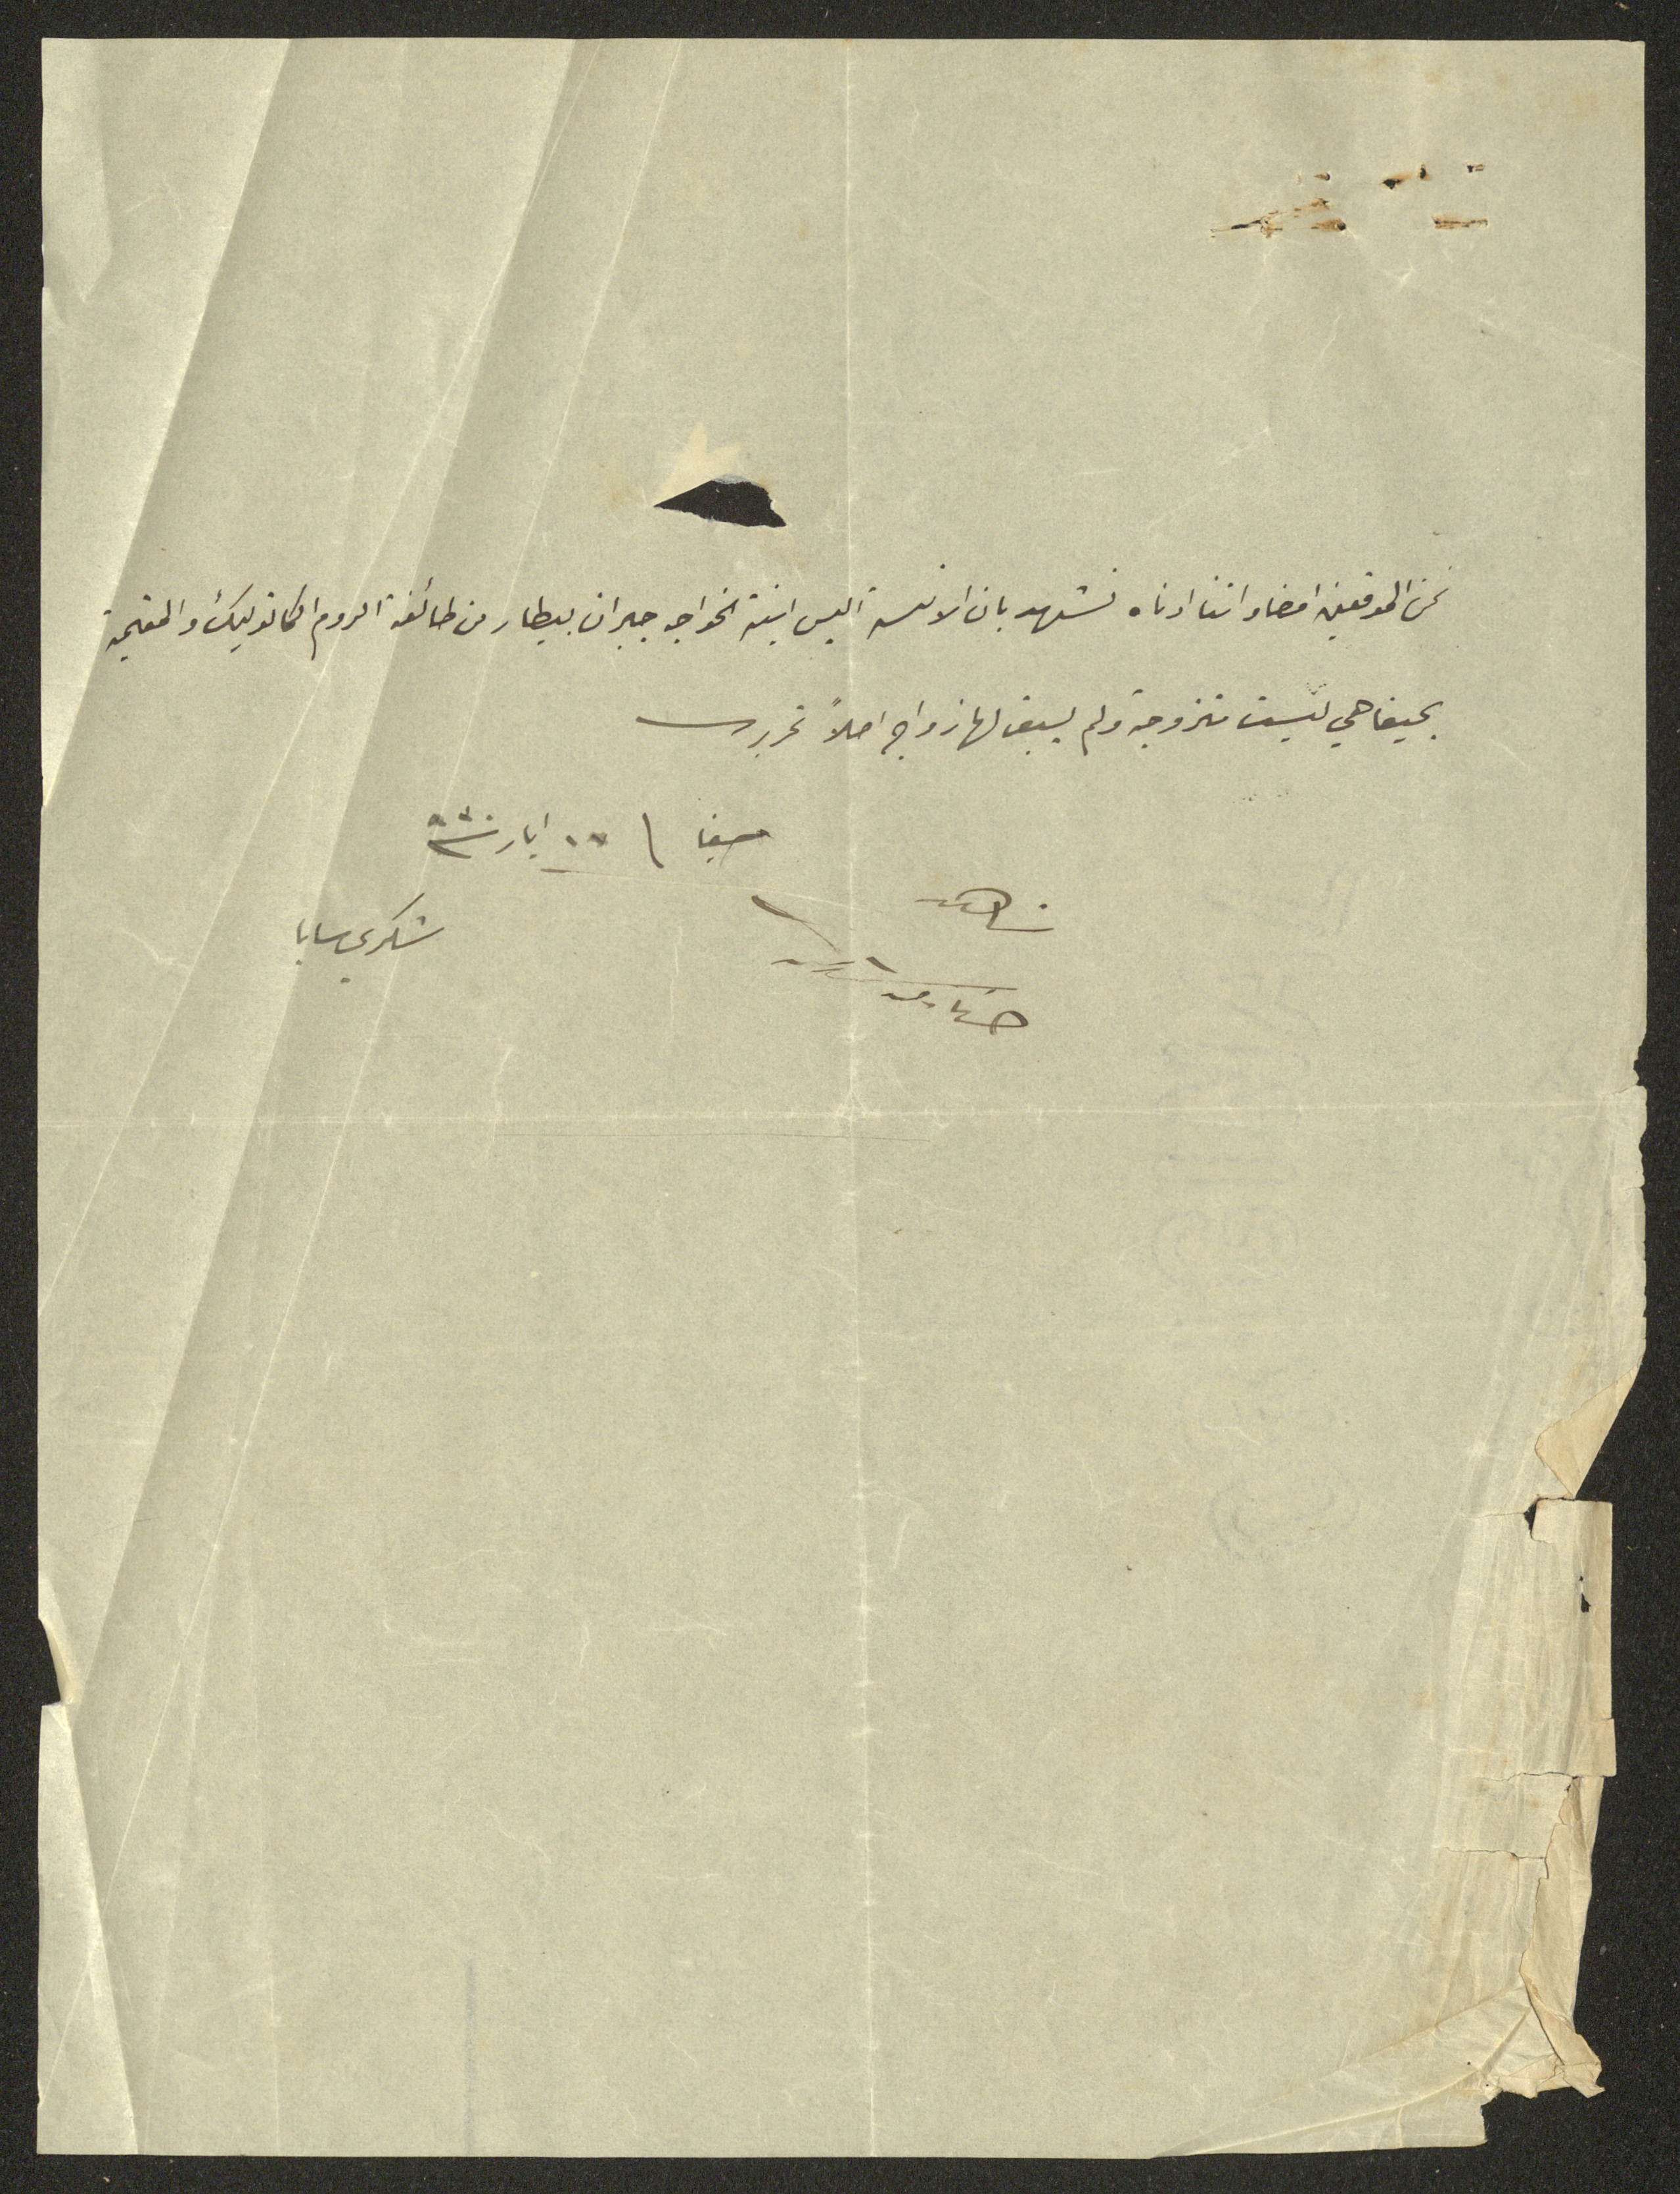 نحن الموقعين امضاواتنا ادناه نشهد بان الانسة اليس ابنة الخواجه جبران بيطار من طائفة الروم الكاثوليك والمقيمة
بحيفا هي ليست متزوجة ولم يسبق لها زواج اصلاً تحريرا
حيفا ايار
شاهد
شكري سابا